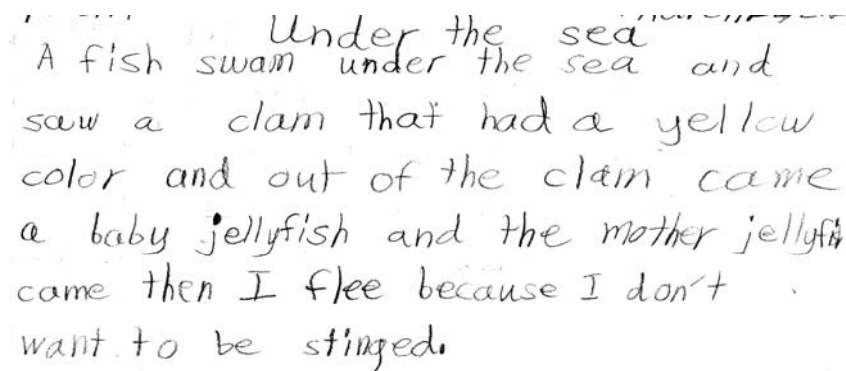 Under the sea
A fish swam under the sea and
saw a clam that had a yellow
color and out of the clam came
a baby jellyfish and the mother jellyfi
came then I flee because I don't
want to be stinged.